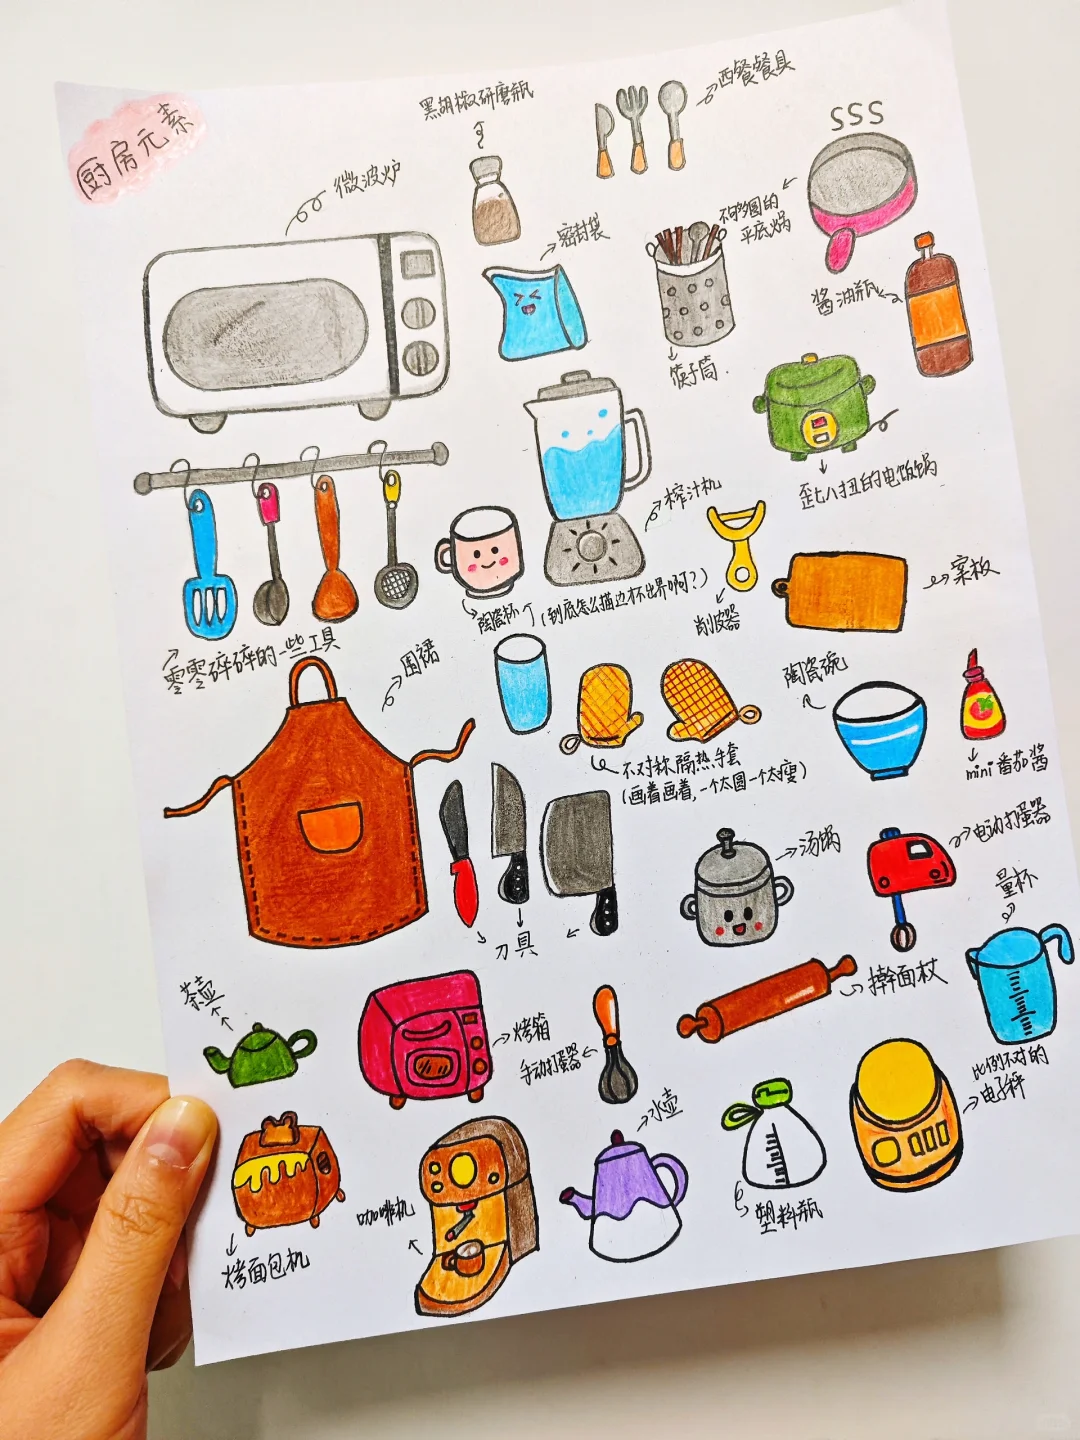 厨房元素
黑胡椒研磨瓶
西餐餐具
微波炉
SSS
密封袋
不够圆的
平底锅
酱油瓶
筷子筒.
歪七八扭的电饭锅
榨汁机
案板
陶瓷杯
(到底怎么描边才不出界啊?)
削皮器
零零碎碎的一些工具
围裙
陶瓷碗
mini番茄酱
不对称隔热手套
(画着画着,一个太圆一个太瘦)
汤锅
电动打蛋器
刀具
量杯
擀面杖
茶壶
烤箱
手动打蛋器
比例不对的
电子秤
水壶
咖啡机
塑料瓶
烤面包机